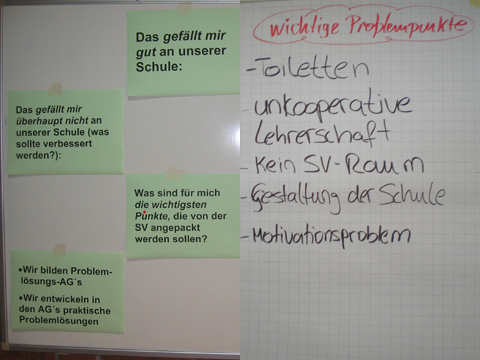 Das gefällt mir
gut an unserer
Schule:
Das gefällt mir
überhaupt nicht an
unserer Schule (was
sollte verbessert
werden?):
Was sind für mich
die wichtigsten
Punkte, die von der
SV angepackt
werden sollen?
•Wir bilden Problem-
lösungs-AG´s
•Wir entwickeln in
den AG´s praktische
Problemlösungen
wichtige Problempunkte
-Toiletten
- unkooperative
Lehrerschaft
- Kein SV-Raum
- Gestaltung der Schule
- Motivationsproblem